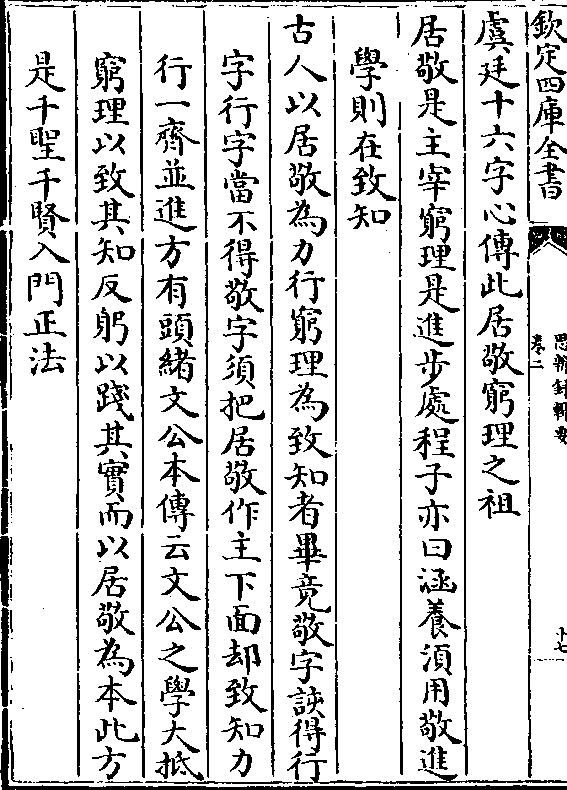 欽定四庫全書
思辨錄輯要
卷二
十七
虞廷十六字心傳此居敬窮理之祖
居敬是主宰窮理是進步處程子亦曰涵養須用敬進
學則在致知
古人以居敬為力行窮理為致知者畢竟敬字該得行
字行字當不得敬字須把居敬作主下面却致知力
行一齊並進方有頭緒文公本傳云文公之學大抵
窮理以致其知反躬以踐其實而以居敬為本此方
是千聖千賢入門正法